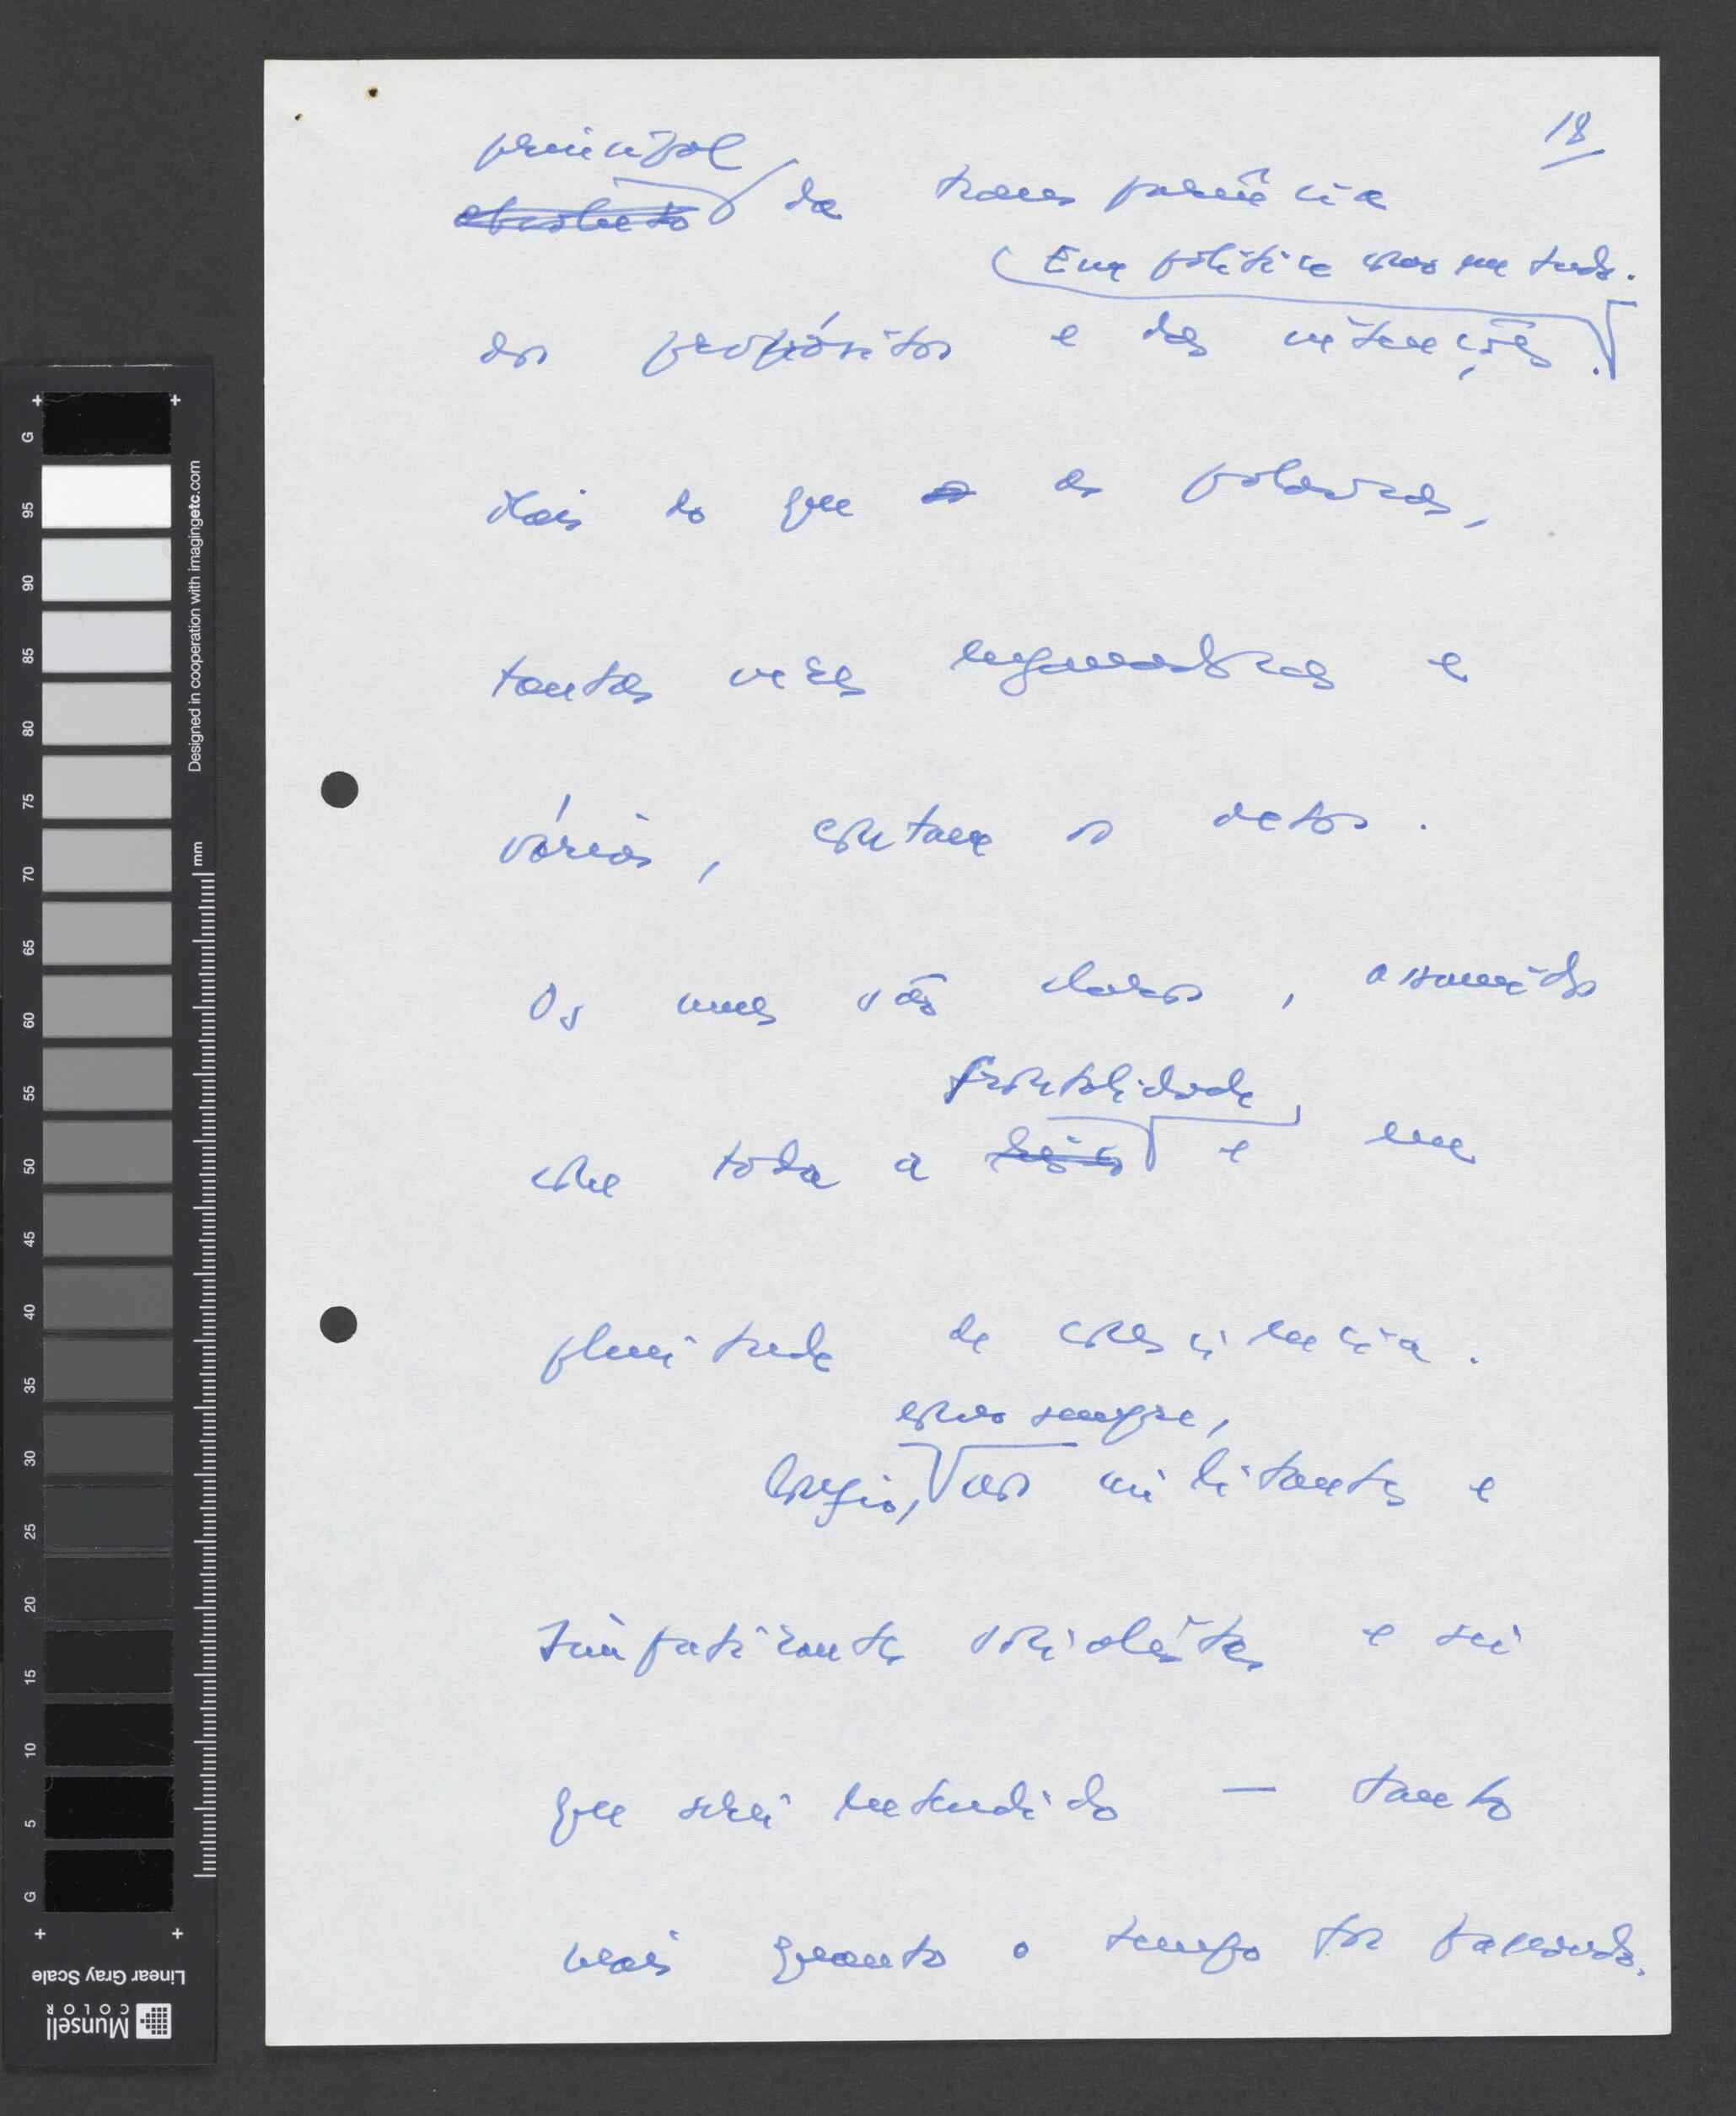 18
principal
absoluto da transparência
Em política como em tudo.
dos propósitos e das intenções.
Mais do que as palavras,
tantas vezes enganadoras e
vários, contam os actos.
Os meus são claros, assumidos
frontalidade,
com toda a e em
plenitude de consciência.
como sempre,
Confio, aos militantes e
simpatizantes socialistas e sei
que serei entendido — tanto
mais quanto o tempo for passando.
G
95
90
85
80
75
70
65
60
55
50
45
40
35
30
25
20
15
10
5
G
Designed in cooperation with imagingetc.com
mm
Linear Gray Scale
Munsell
COLOR